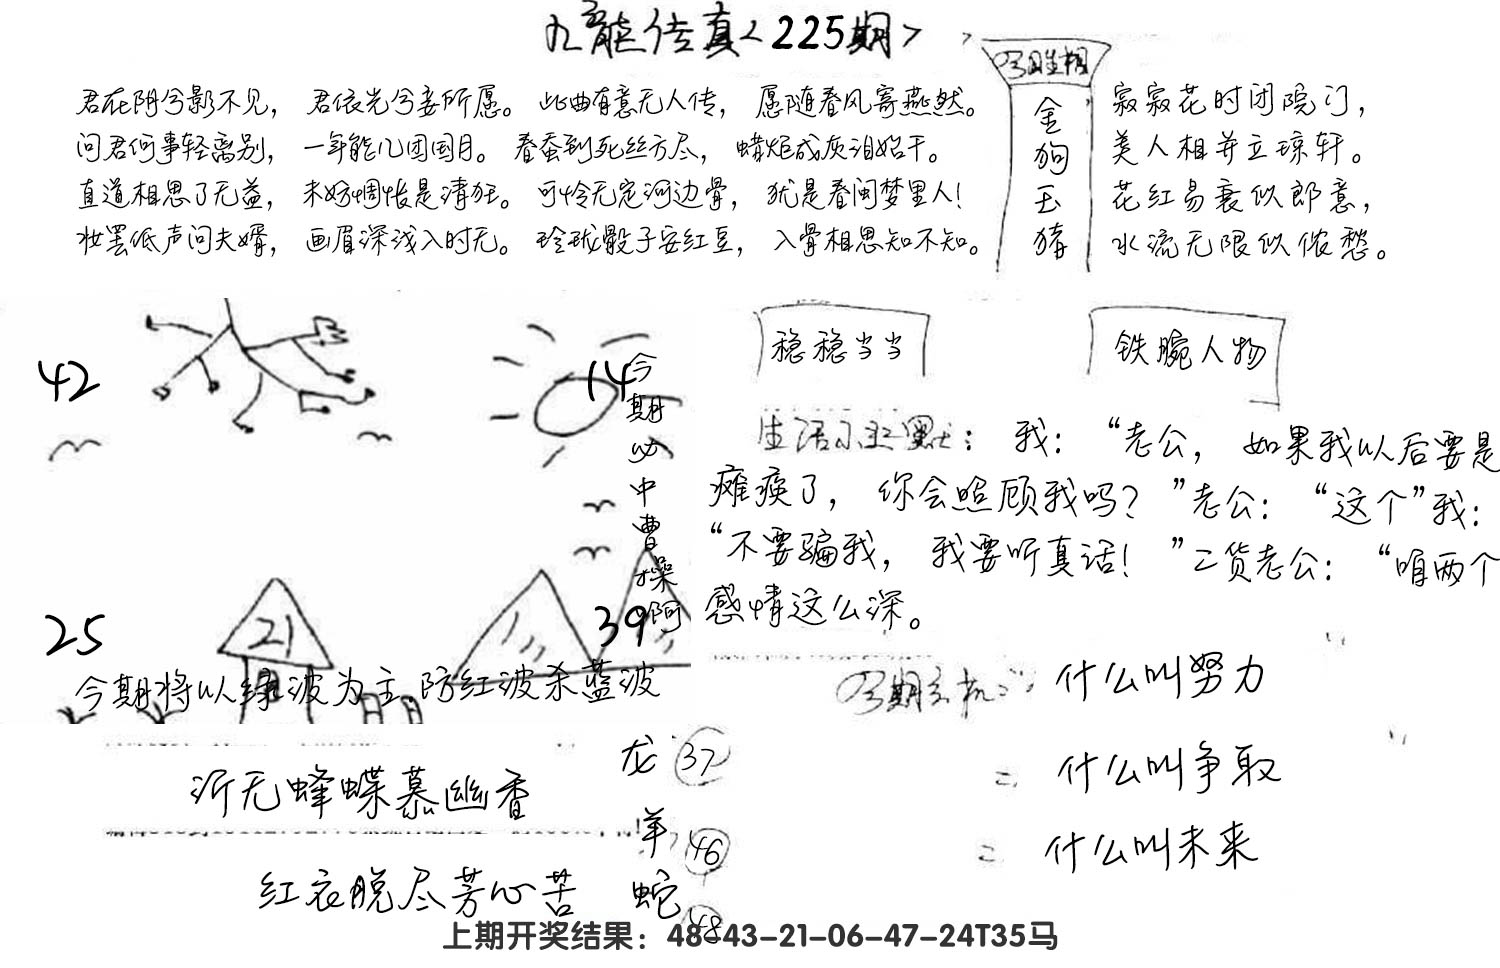 九龙传真<225期>
今期生相
金
狗
玉
猪
君在阴兮影不见， 君依光兮妾所愿。 此曲有意无人传， 愿随春风寄燕然。
问君何事轻离别， 一年能几团圆月。 春蚕到死丝方尽， 蜡炬成灰泪始干。
直道相思了无益， 未妨惆怅是清狂。 可怜无定河边骨， 犹是春闺梦里人！
妆罢低声问夫婿， 画眉深浅入时无。 玲珑骰子安红豆， 入骨相思知不知。
寂寂花时闭院门，
美人相并立琼轩。
花红易衰似郎意，
水流无限似侬愁。
42
14
今期必中曹操阿
25
21
39
今期将以绿波为主.防红波杀蓝波
稳稳当当
铁腕人物
生活小幽默： 我： “老公， 如果我以后要是
瘫痪了， 你会照顾我吗？ ”老公： “这个”我：
“不要骗我， 我要听真话！ ”二货老公： “咱两个
感情这么深。
什么叫努力
= 什么叫争取
= 什么叫未来
沂无蜂蝶慕幽香
红衣脱尽芳心苦
龙 37
羊 46
蛇 48
上期开奖结果：48-43-21-06-47-24T35马